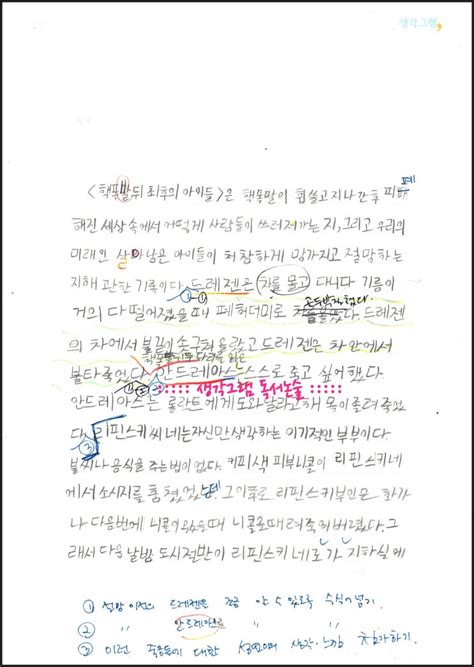 생각그램,
<핵폭발뒤 최후의 아이들>은 핵폭발이 휩쓸고 지나간 후 피폐
해진 세상 속에서 어떻게 사람들이 쓰러져가는 지, 그리고 우리의
미래인 살아남은 아이들이 처참하게 망가지고 절망하는
지에 관한 기록이다. 드레젠은 차를 몰고 다니다 기름이
①
거의 다 떨어졌을 때 폐허더미로 곤두박질쳤다. 드레젠
의 차에서 불길이 솟구쳐 올랐고 드레젠은 차 안에서
불타 죽었다. 안드레아스는 스스로 죽고 싶어 했다
② 생각그램 독서논술
안드레아스는 롤란트에게 도와달라고 해 목이 졸려 죽었
다. 리핀스키씨네는 자신만 생각하는 이기적인 부부이다.
③
불씨나 음식을 주는 법이 없다. 커피색 피부 니콜이 리핀스키네
에서 소시지를 훔쳤었는데 그 이후로 리핀스키부인은 화가
나 다음번에 니콜이 왔을 때 니콜을 때려 죽여버렸다. 그
래서 다음 날 밤 도시 절반이 리핀스키네로 가 지하실에
① 설명 이전의 드레젠은 조금 알 수 있도록 수식어 넣기.
② " 안드레아스 "
③ 이런 죽음들에 대한 설명이며 생각·느낌 첨가하기.